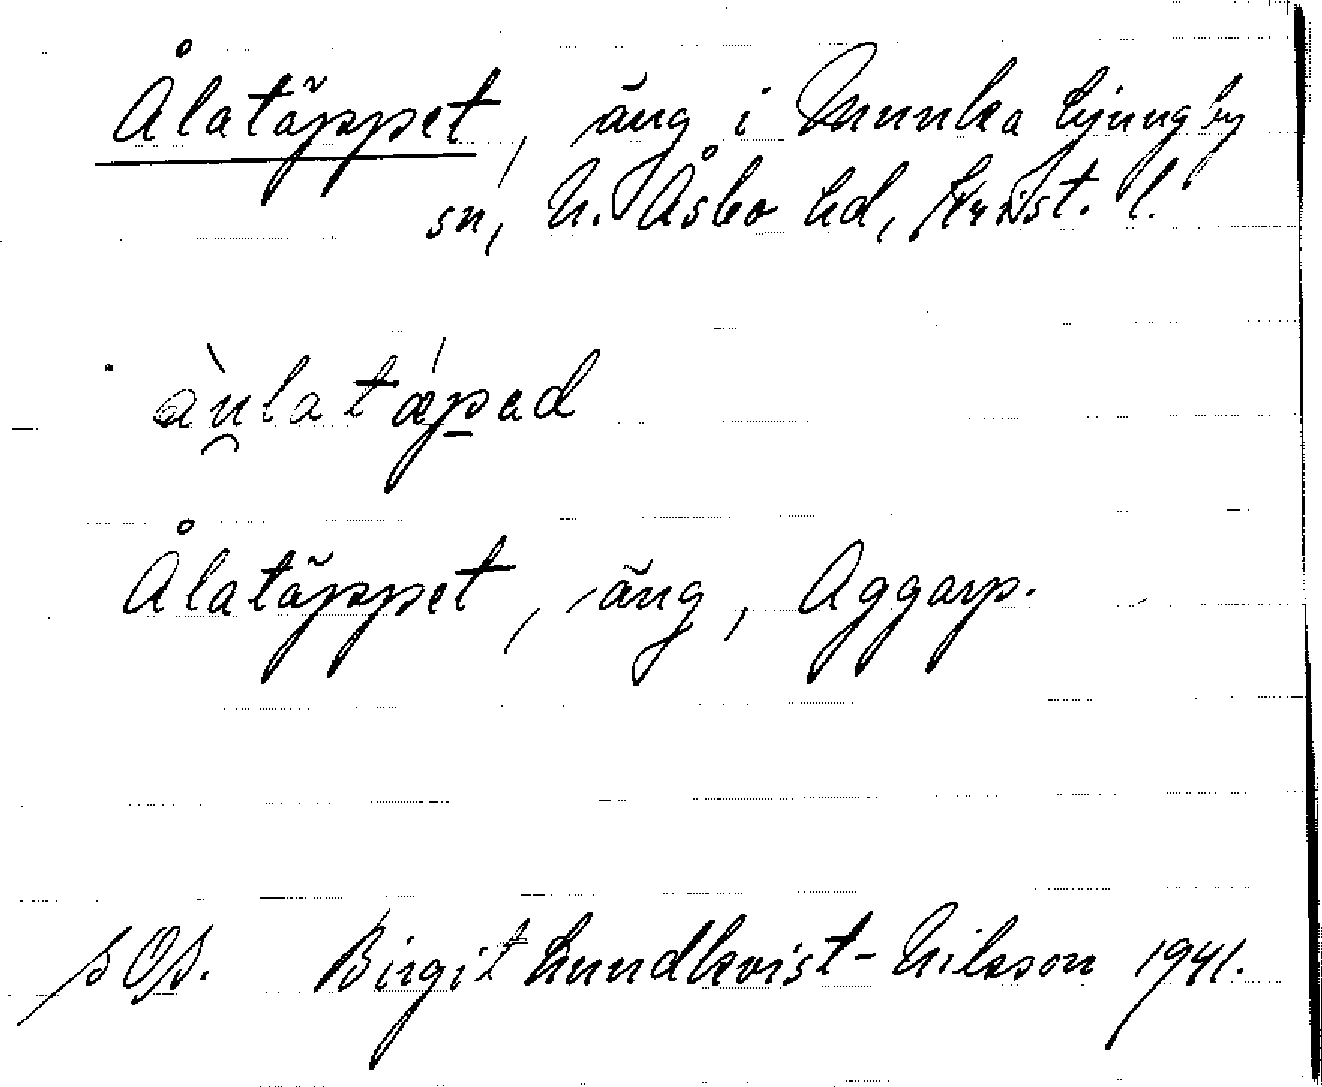 Ålatäppet, äng i Munka Ljungby
sn, N. Åsbo hd, Krist. l.
àu̯latápad
Ålatäppet, äng, Aggarp.
SOS. Birgit Lundkvist-Nilsson 1941.